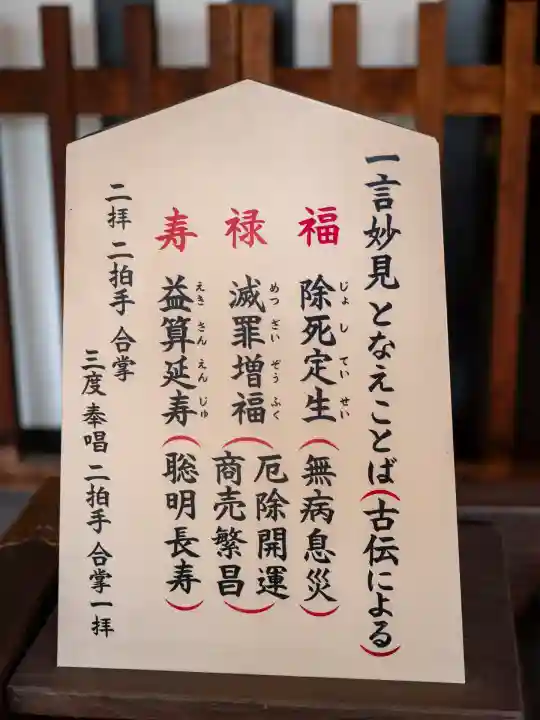 一言妙見 となえことば（古伝による）
福 除死定生（無病息災）
じょ し てい せい
禄 滅罪増福（厄除開運 商売繁昌）
めつ ざい ぞう ふく
寿 益算延寿（聡明長寿）
えき さん えん じゅ
二拝 二拍手 合掌
三度 奉唱 二拍手 合掌一拝